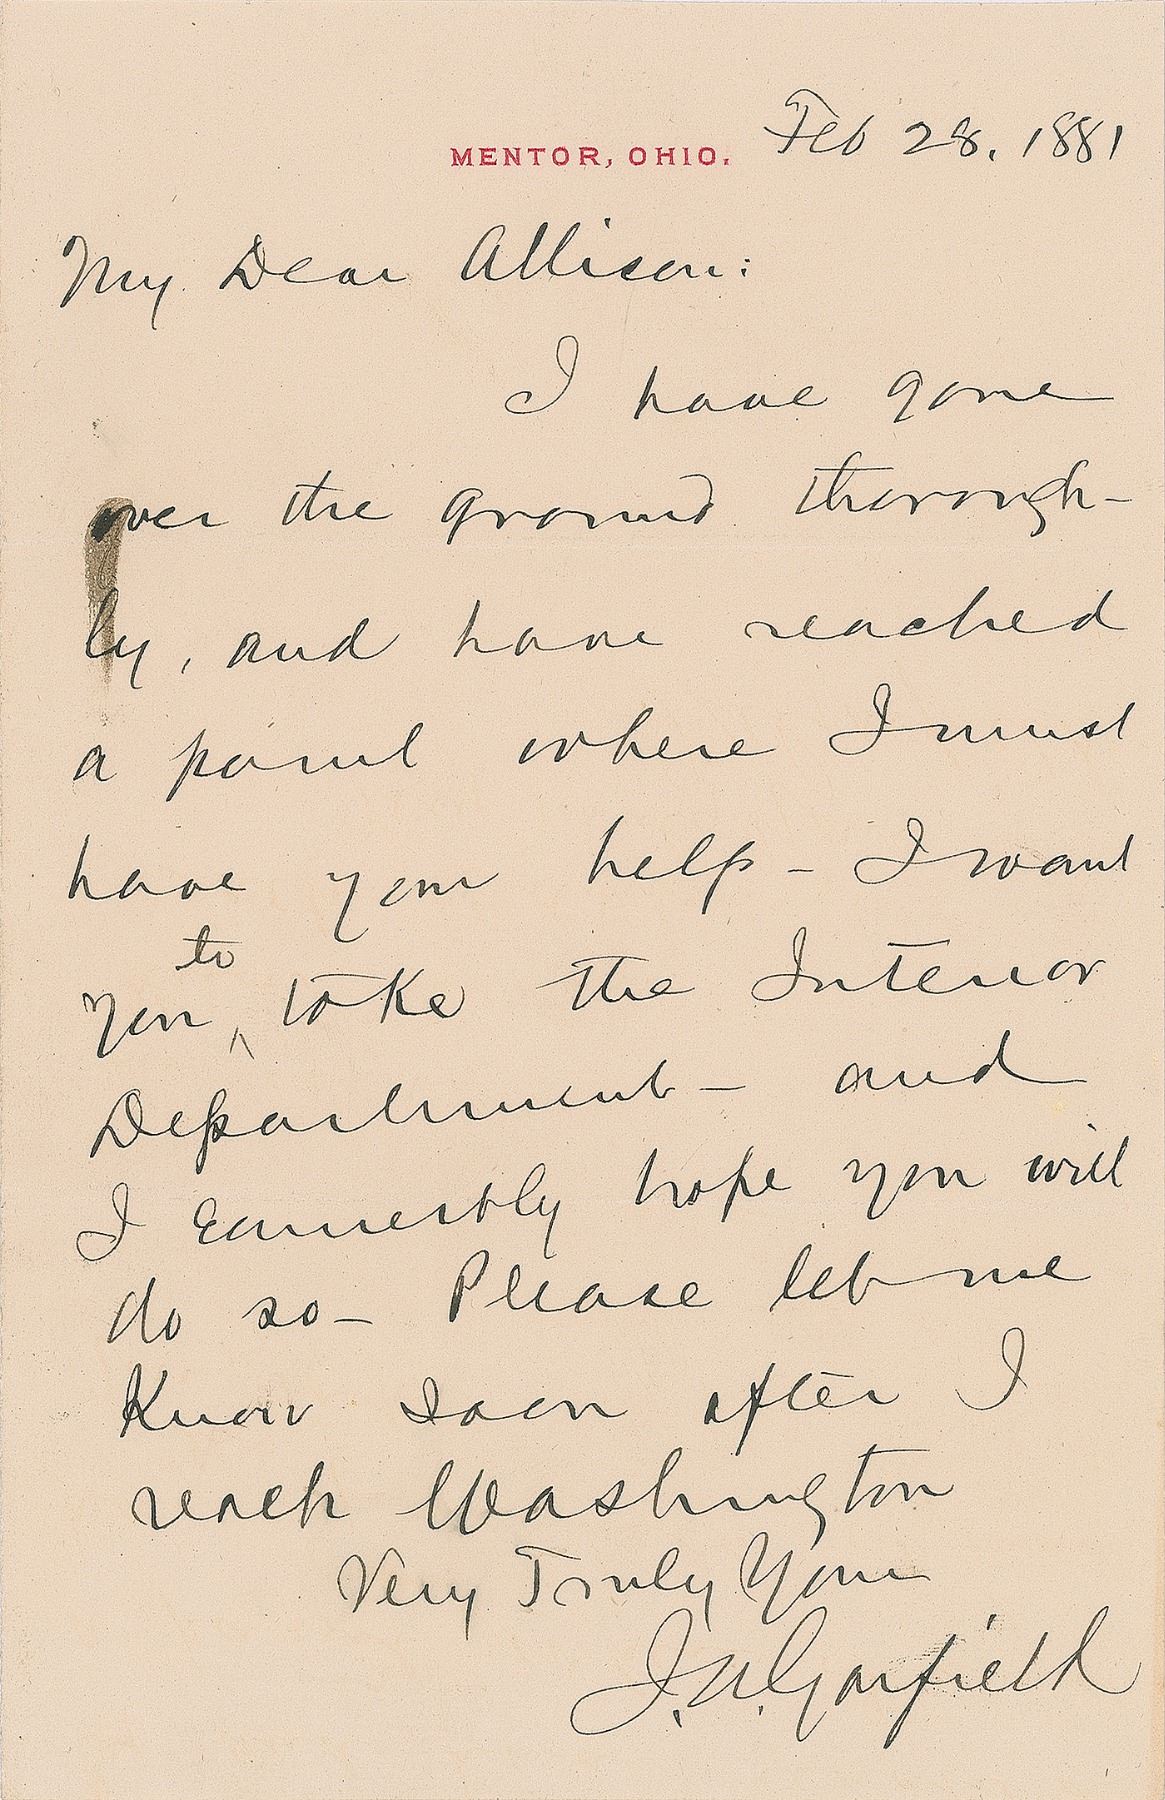 MENTOR, OHIO. Feb 28. 1881
My Dear Allison:
I have gone
over the ground thorough-
ly, and have reached
a point where I must
have your help - I want
you to take the Interior
Department - and
I earnestly hope you will
do so - Please let me
Know soon after I
reach Washington
Very Truly Yours
J.A. Garfield